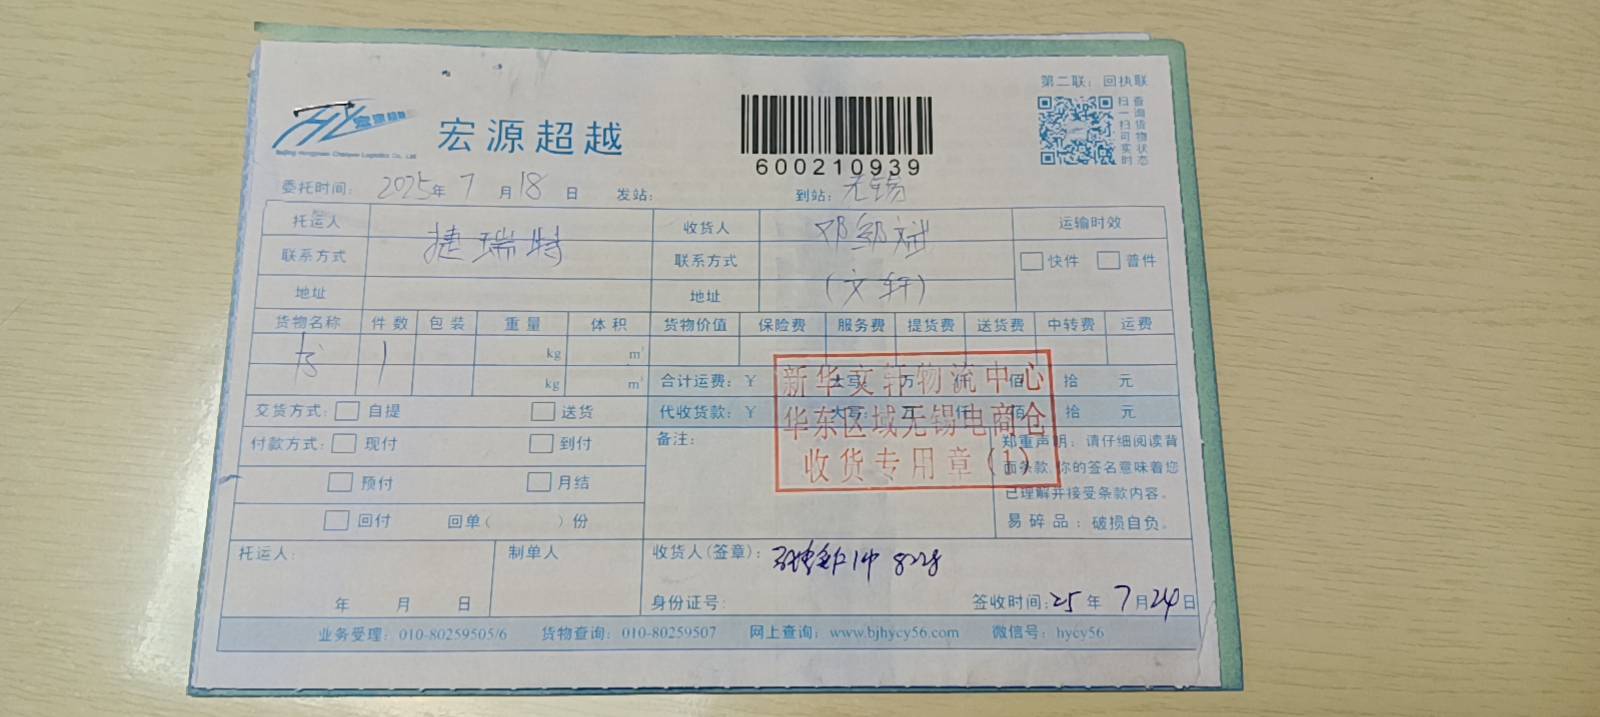 第二联：回执联
宏源超越
宏源超越
600210939
扫一扫可实时
查询货物状态
委托时间： 2025年 7 月 18 日 发站： 到站：无锡
托运人 捷瑞特 收货人 运输时效
联系方式 联系方式 快件 普件
地址 地址 （文轩）
货物名称 件数 包装 重量 体积 货物价值 保险费 服务费 提货费 送货费 中转费 运费
书 1 kg m³
kg m³ 合计运费：￥ 大写： 万 仟 佰 拾 元
交货方式： 自提 送货 代收货款：￥ 大写： 万 仟 佰 拾 元
新华文轩物流中心
华东区域无锡电商仓
收货专用章(1)
付款方式： 现付 到付 备注：
预付 月结
回付 回单( )份
郑重声明：请仔细阅读背
面条款，你的签名意味着您
已理解并接受条款内容。
易碎品：破损自负。
托运人： 制单人 收货人(签章)：
年 月 日 身份证号： 签收时间：25 年 7 月 24 日
业务受理：010-80259505/6 货物查询：010-80259507 网上查询：www.bjhycy56.com 微信号：hycy56